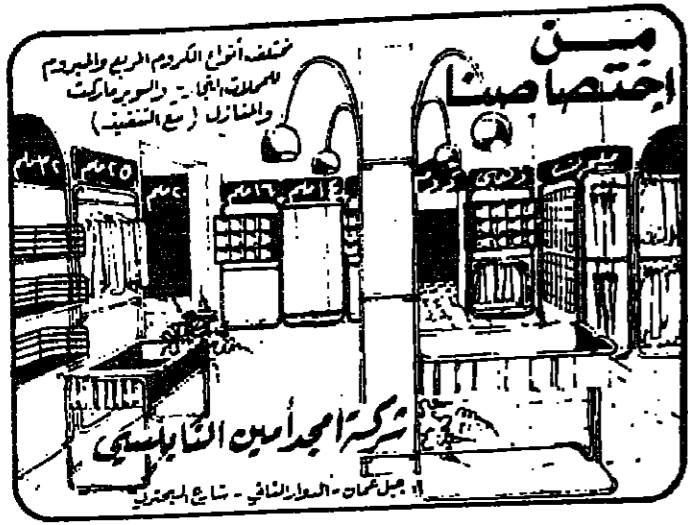 من
إختصاصنا
مختلف أنواع الكروم المربع والمبروم
للمحلات التجارية والسوبرماركت
والمنازل (مع التنفيذ)
٣٢ ملم
٢٥ ملم
٢٠ ملم
١٦ ملم
١٤ ملم
كروم
ذهبي
شركة امجد أمين النابلسي
جبل عمان - الدوار الثاني - شارع البحتري